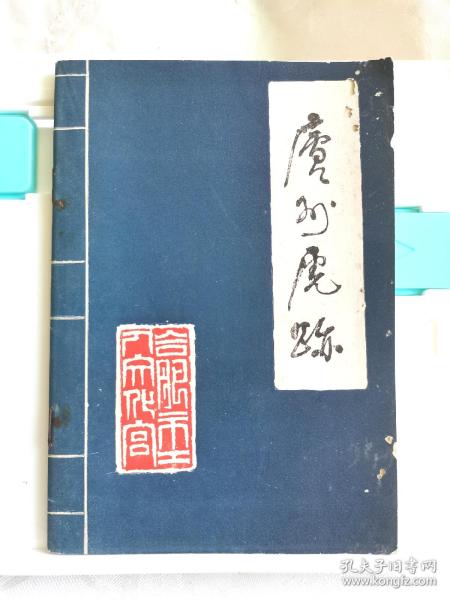 廬州虎跡
合肥市工
人文化宮
孔夫子旧书网
www.kongfz.com